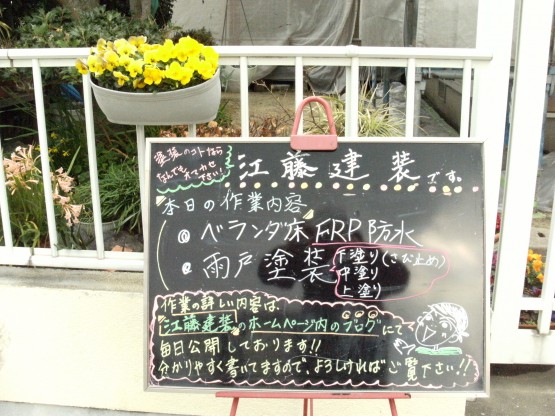 塗装のコトなら
なんでもおまかせ
下さい!
江藤建装です。
本日の作業内容
◎ベランダ床FRP防水
◎雨戸塗装
下塗り(さび止め)
中塗り
上塗り
作業の詳しい内容は、
江藤建装のホームページ内のブログにて
毎日公開しております!!
分かりやすく書いてますので、よろしければご覧下さい!!